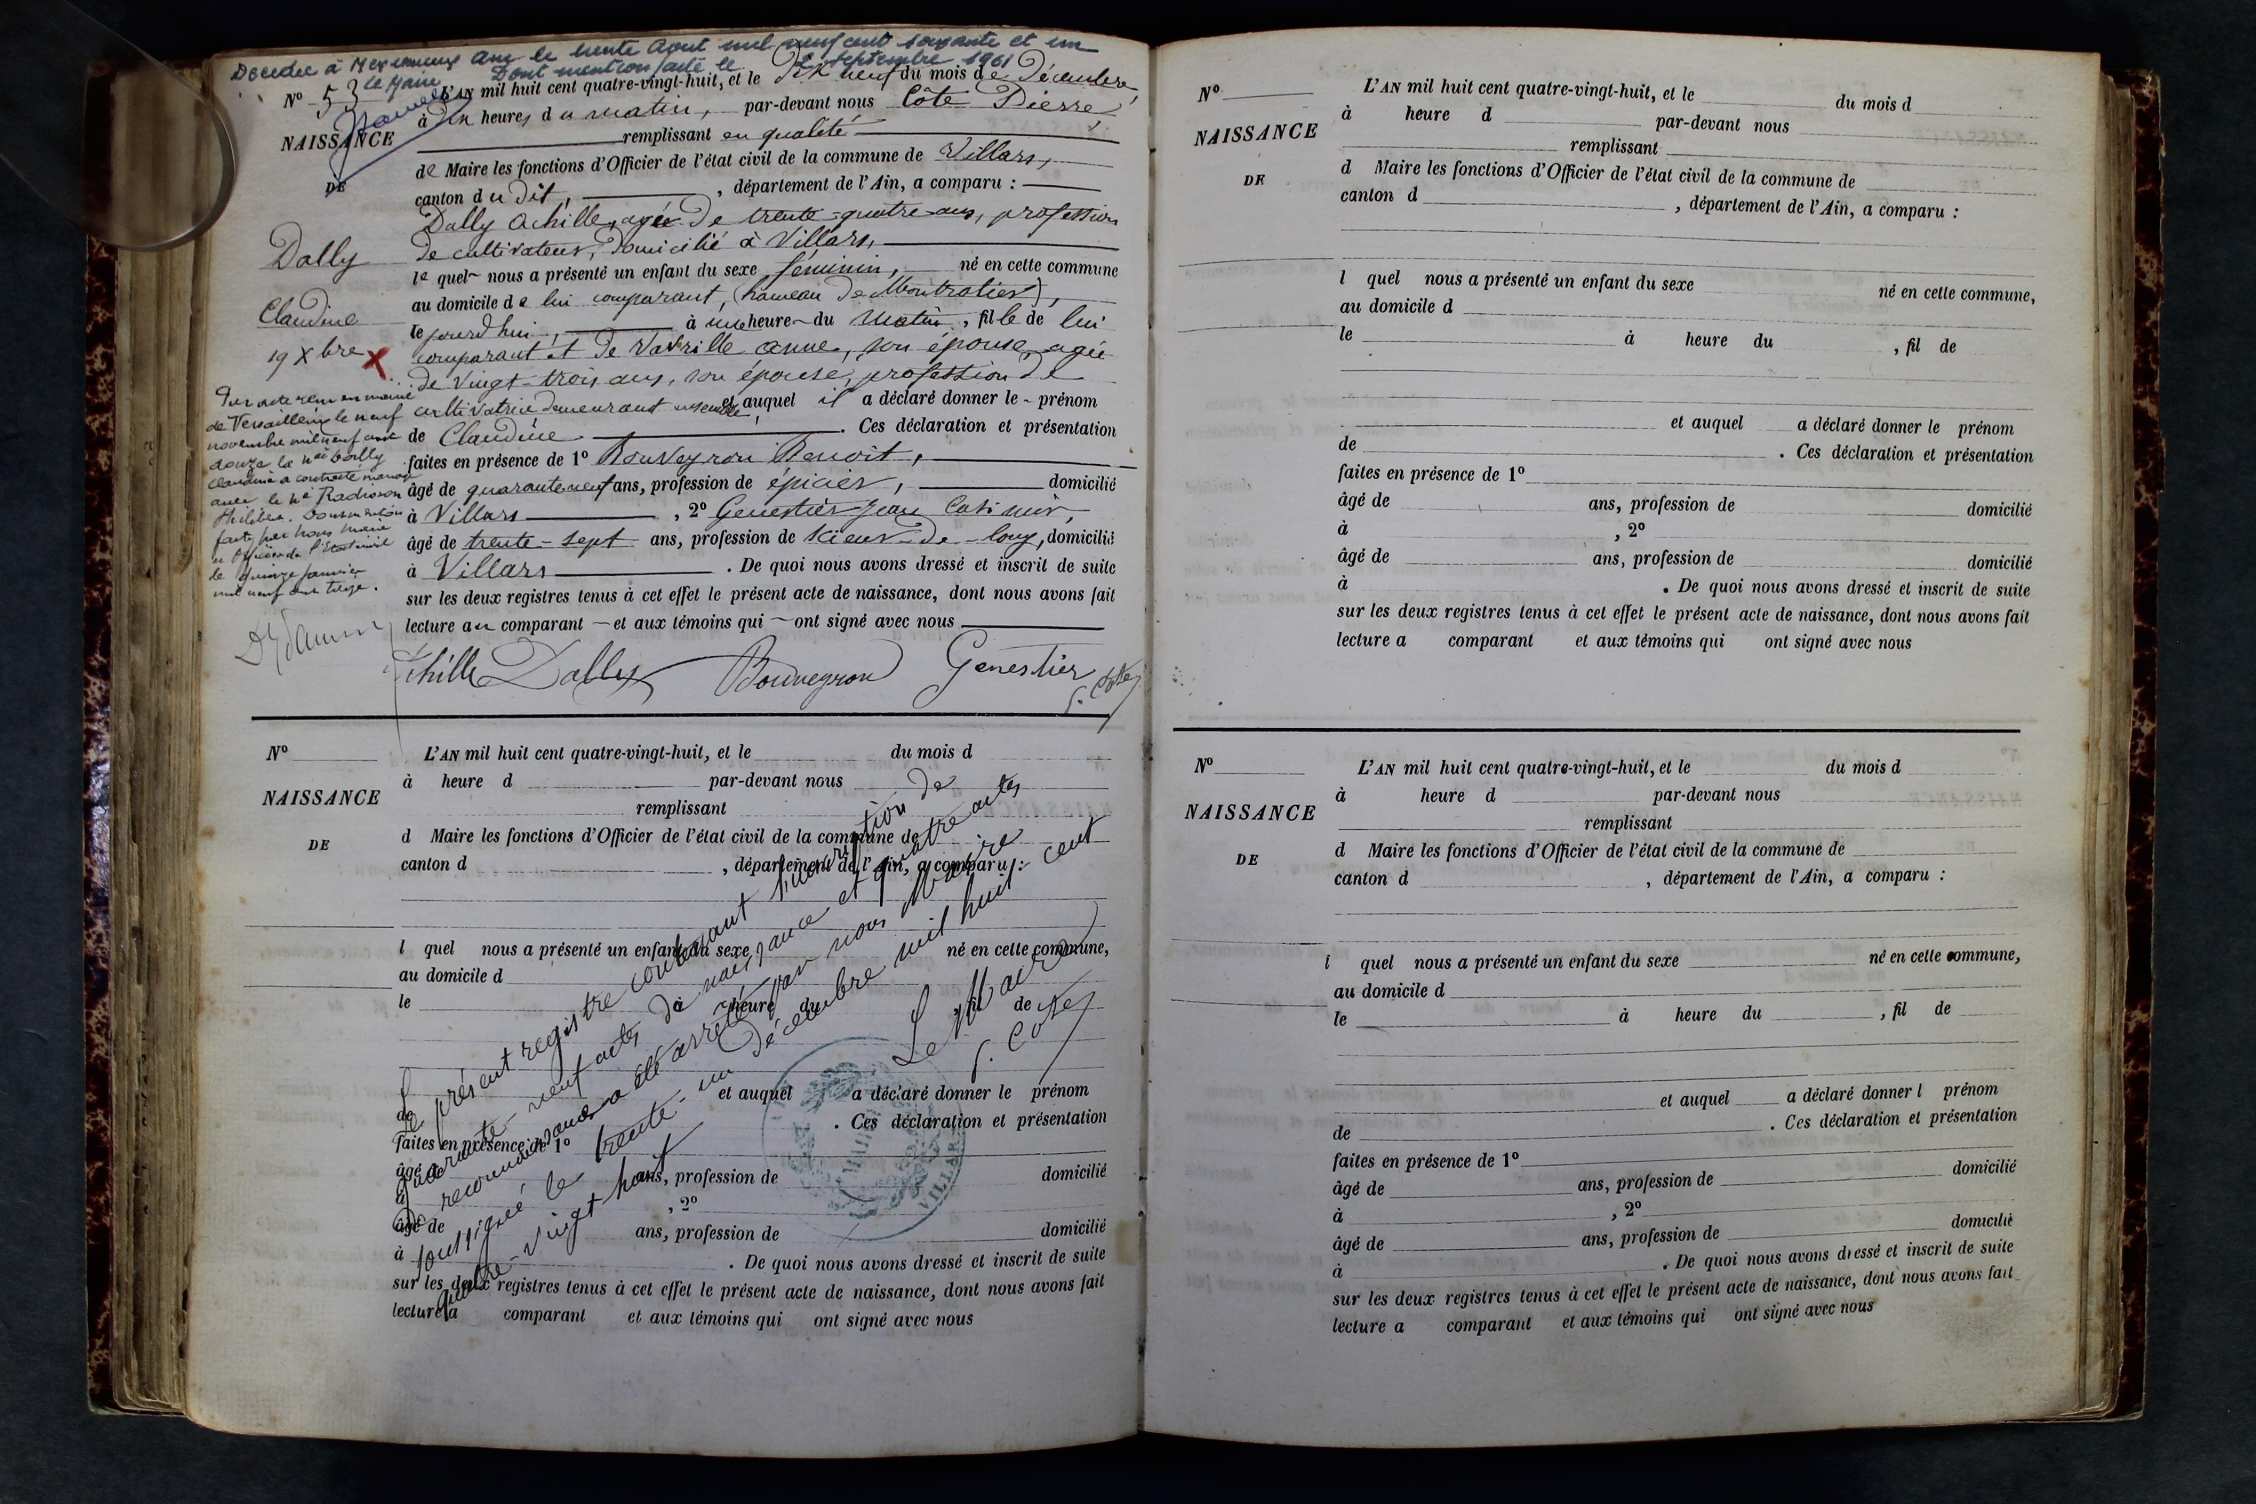 Décédée à Meximieux Ain le trente Aout mil neuf cent soixante et un
Dont mention faite le 2 septembre 1961
Le Maire
N° 53
NAISSANCE
DE
Dally
Claudine
19 Xbre X
Par acte reçu en mairie
de Versailleux le neuf
novembre mil neuf cent
douze la née Dally
Claudine a contracté mariage
avec le né Radisson
Philibert. Dont mention
faite par nous Maire
et Officier de l'Etat civil
le quinze janvier
mil neuf cent treize.
L'AN mil huit cent quatre-vingt-huit, et le dix neuf du mois de Décembre,
à dix heures du matin, par-devant nous Côte Pierre,
remplissant en qualité
de Maire les fonctions d'Officier de l'état civil de la commune de Villars,
canton du dit, département de l'Ain, a comparu :
Dally Achille, agé de trente-quatre ans, profession
de cultivateur, domicilié à Villars,
lequel nous a présenté un enfant du sexe féminin, né en cette commune
au domicile de lui comparant, (hameau de Montrolier),
le jourd'hui, à une heure du matin, fille de lui
comparant et de Vavrille anne, son épouse agée
de vingt-trois ans, son épouse, profession de
cultivatrice demeurant ensemble, et auquel il a déclaré donner le prénom
de Claudine. Ces déclaration et présentation
faites en présence de 1° Bouveyron Benoit,
âgé de quarante neuf ans, profession de épicier, domicilié
à Villars, 2° Genestier Jean Casimir,
âgé de trente-sept ans, profession de scieur-de-long, domicilié
à Villars. De quoi nous avons dressé et inscrit de suite
sur les deux registres tenus à cet effet le présent acte de naissance, dont nous avons fait
lecture au comparant et aux témoins qui ont signé avec nous
Achille Dally Bouveyron Genestier
P. Côte
N°
NAISSANCE
DE
L'AN mil huit cent quatre-vingt-huit, et le du mois d
à heure d par-devant nous
remplissant
d Maire les fonctions d'Officier de l'état civil de la commune de
canton d , département de l'Ain, a comparu :
l quel nous a présenté un enfant du sexe né en cette commune,
au domicile d
le à heure du , fil de
et auquel a déclaré donner le prénom
de . Ces déclaration et présentation
faites en présence de 1°
âgé de ans, profession de domicilié
à , 2°
âgé de ans, profession de domicilié
à . De quoi nous avons dressé et inscrit de suite
sur les deux registres tenus à cet effet le présent acte de naissance, dont nous avons fait
lecture a comparant et aux témoins qui ont signé avec nous
Le présent registre contenant l'inscription de
quarante-neuf actes de naissance et quatre actes
de reconnaissance a été arrêté par nous Maire
soussigné le trente-un décembre mil huit cent
quatre-vingt huit
Le Maire
P. Côte
MAIRIE
VILLARS
N°
NAISSANCE
DE
L'AN mil huit cent quatre-vingt-huit, et le du mois d
à heure d par-devant nous
remplissant
d Maire les fonctions d'Officier de l'état civil de la commune de
canton d , département de l'Ain, a comparu :
l quel nous a présenté un enfant du sexe né en cette commune,
au domicile d
le à heure du , fil de
et auquel a déclaré donner le prénom
de . Ces déclaration et présentation
faites en présence de 1°
âgé de ans, profession de domicilié
à , 2°
âgé de ans, profession de domicilié
à . De quoi nous avons dressé et inscrit de suite
sur les deux registres tenus à cet effet le présent acte de naissance, dont nous avons fait
lecture a comparant et aux témoins qui ont signé avec nous
N°
NAISSANCE
DE
L'AN mil huit cent quatre-vingt-huit, et le du mois d
à heure d par-devant nous
remplissant
d Maire les fonctions d'Officier de l'état civil de la commune de
canton d , département de l'Ain, a comparu :
l quel nous a présenté un enfant du sexe né en cette commune,
au domicile d
le à heure du , fil de
et auquel a déclaré donner l prénom
de . Ces déclaration et présentation
faites en présence de 1°
âgé de ans, profession de domicilié
à , 2°
âgé de ans, profession de domicilié
à . De quoi nous avons dressé et inscrit de suite
sur les deux registres tenus à cet effet le présent acte de naissance, dont nous avons fait
lecture a comparant et aux témoins qui ont signé avec nous